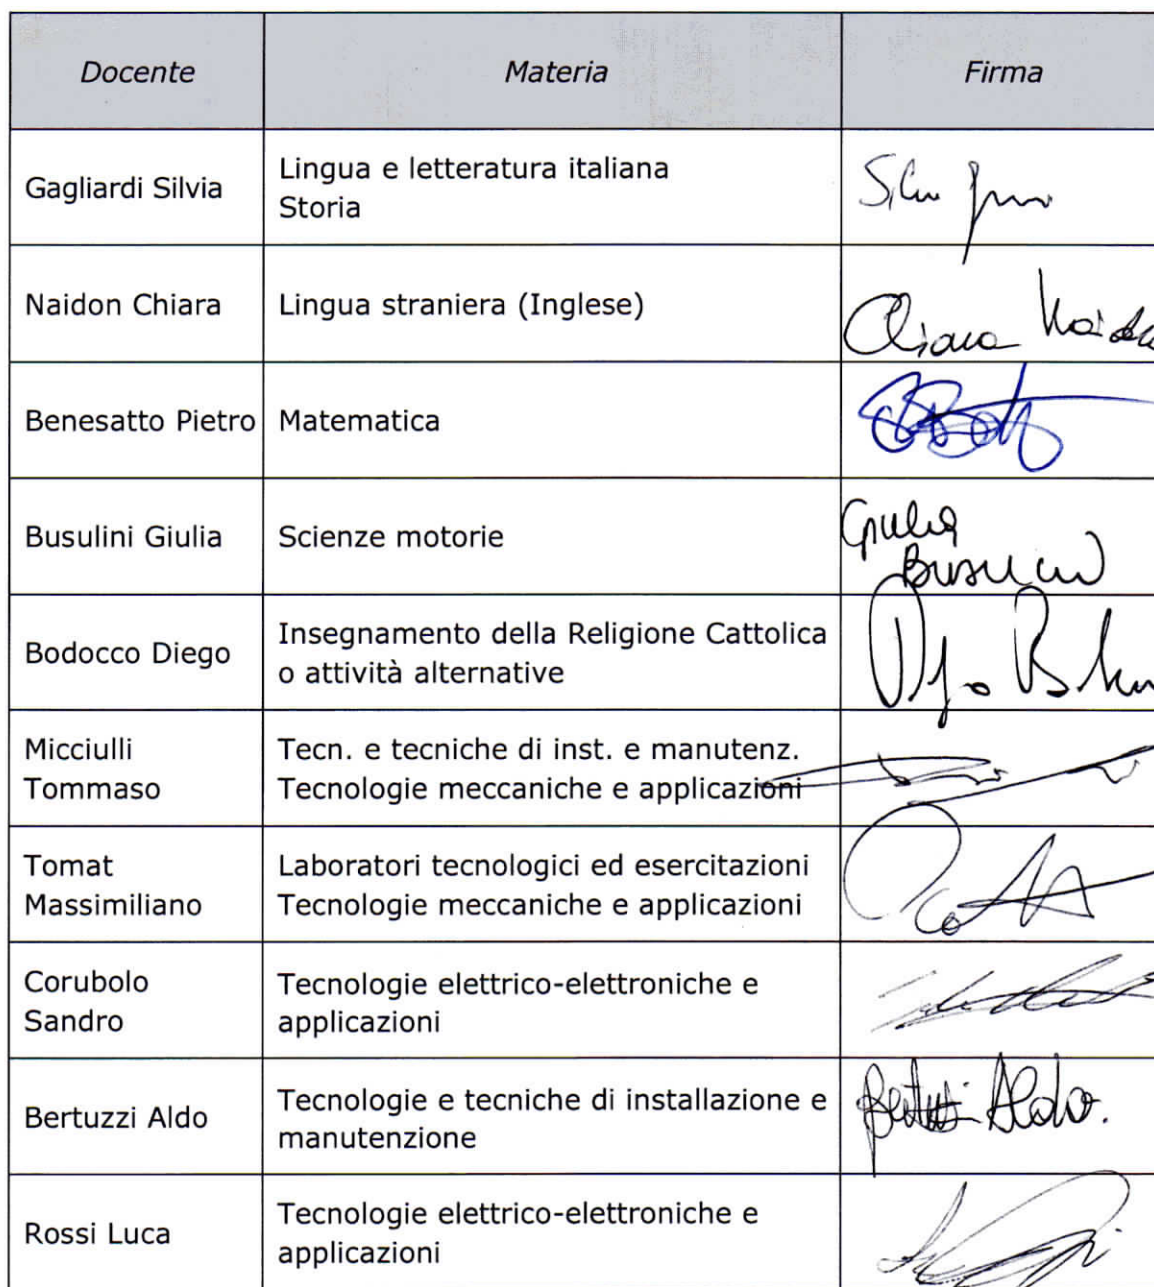 Docente Materia Firma
Gagliardi Silvia
Lingua e letteratura italiana
Storia
Naidon Chiara
Lingua straniera (Inglese)
Chiara Naidon
Benesatto Pietro
Matematica
Busulini Giulia
Scienze motorie
Giulia
Busulini
Bodocco Diego
Insegnamento della Religione Cattolica
o attività alternative
Micciulli
Tommaso
Tecn. e tecniche di inst. e manutenz.
Tecnologie meccaniche e applicazioni
Tomat
Massimiliano
Laboratori tecnologici ed esercitazioni
Tecnologie meccaniche e applicazioni
Corubolo
Sandro
Tecnologie elettrico-elettroniche e
applicazioni
Bertuzzi Aldo
Tecnologie e tecniche di installazione e
manutenzione
Bertuzzi Aldo.
Rossi Luca
Tecnologie elettrico-elettroniche e
applicazioni